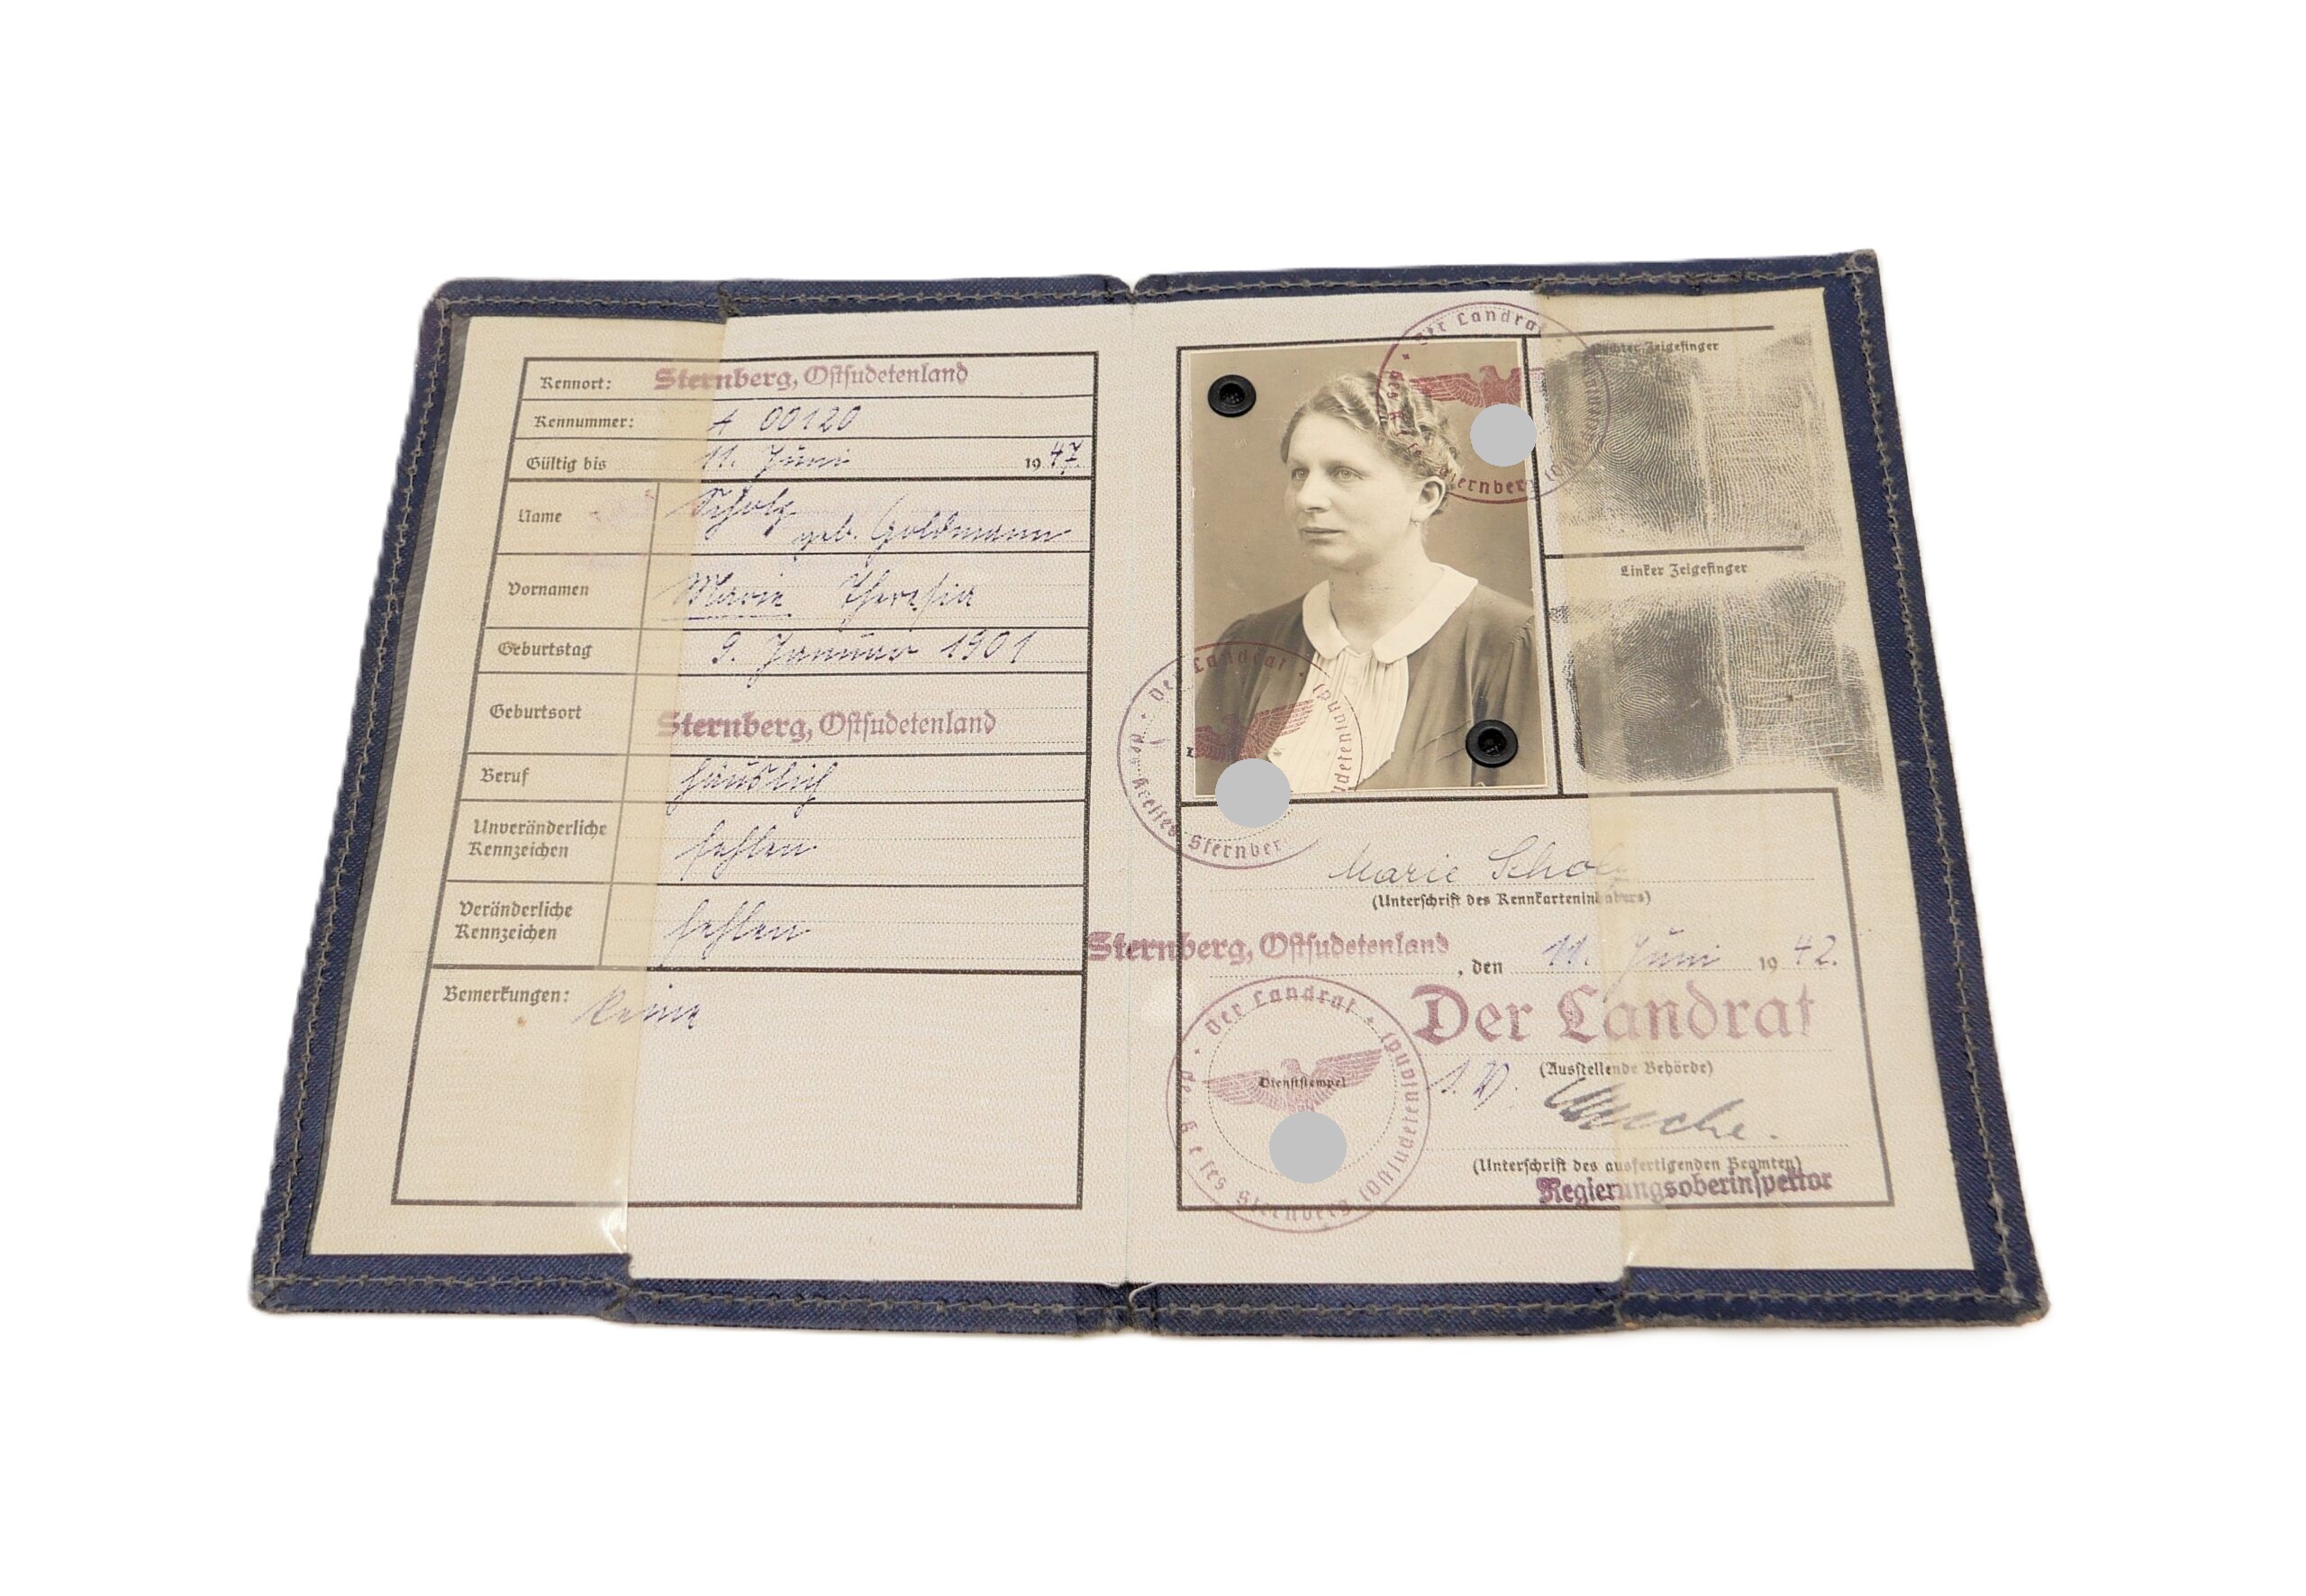 Kennort: Sternberg, Ostsudetenland
Kennummer: A 00120
Gültig bis 11. Juni 1947.
Name Scholz
geb. Goldmann
Vornamen Marie Theresia
Geburtstag 9. Januar 1901
Geburtsort Sternberg, Ostsudetenland
Beruf häuslich
Unveränderliche
Kennzeichen fehlen
Veränderliche
Kennzeichen fehlen
Bemerkungen: Keine
Der Landrat
des Sternberg
Rechter Zeigefinger
Linker Zeigefinger
Der Landrat
des Kreises Sternberg
Marie Scholz
(Unterschrift des Kennkarteninhabers)
Sternberg, Ostsudetenland, den 11. Juni 1942.
Der Landrat
(Ausstellende Behörde)
Der Landrat
des Kreises Sternberg (Ostsudetenland)
Dienststempel
(Unterschrift des ausfertigenden Beamten)
Regierungsoberinspektor